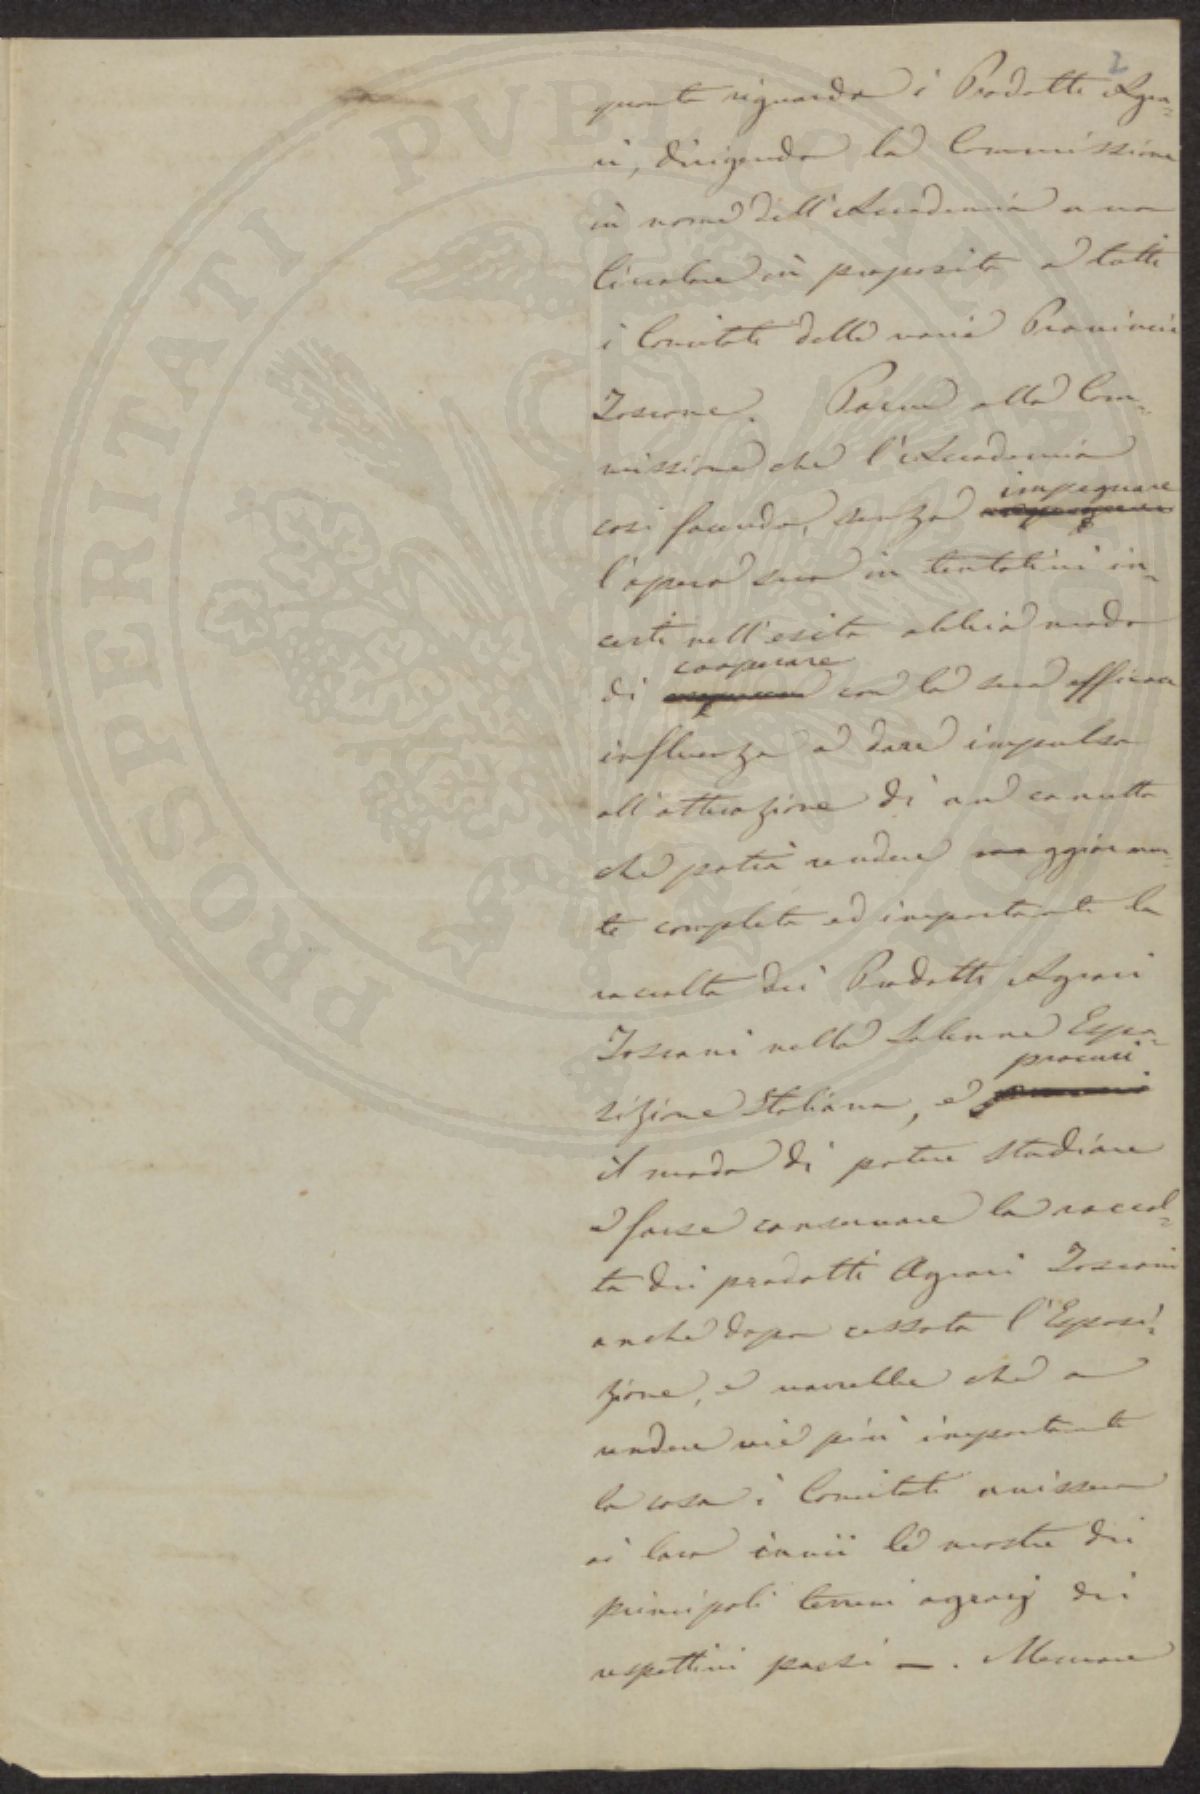 2
quanto riguarda i Prodotti Agra-
ri, dirigendo la Commissione
in nome dell'Accademia una
Circolare in proposito a tutti
i Comitati delle varie Provincie
Toscane. Parve alla Com-
missione che l'Accademia
impegnare
così facendo, senza
l'opera sua in tentativi in-
certi nell'esito abbia modo
cooperare
di con la sua efficace
influenza a dare impulso
all'attuazione di un concetto
che potrà rendere maggiormen-
te completa ed importante la
raccolta dei Prodotti Agrari
Toscani nella Solenne Espo-
procuri
sizione Italiana, e
il modo di potere studiare
e forse conservare la raccol-
ta dei prodotti Agrari Toscani
anche dopo cessata l'Esposi-
zione, e vorrebbe che a
rendere vie più importante
la cosa i Comitati unissero
ai loro invii le mostre dei
principali terreni agrarj dei
respettivi paesi —.